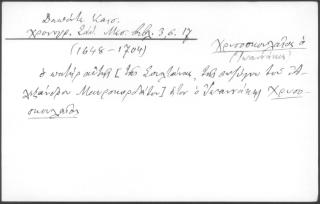 Δαπόντε Καισ.
Χρονογρ. Σάθ. Μεσ. Βιβλ. 3, σ. 17
(1648 - 1704)
Χρυσοσκουλαῖος ὁ
(Ἰωαννάκης)
ὁ πατὴρ αὐτῆς [τῆς Σουλτάνας, τῆς συζύγου τοῦ Ἀ-
λεξάνδρου Μαυροκορδάτου] ἦτον ὁ Ἰωαννάκης Χρυσο-
σκουλαῖος